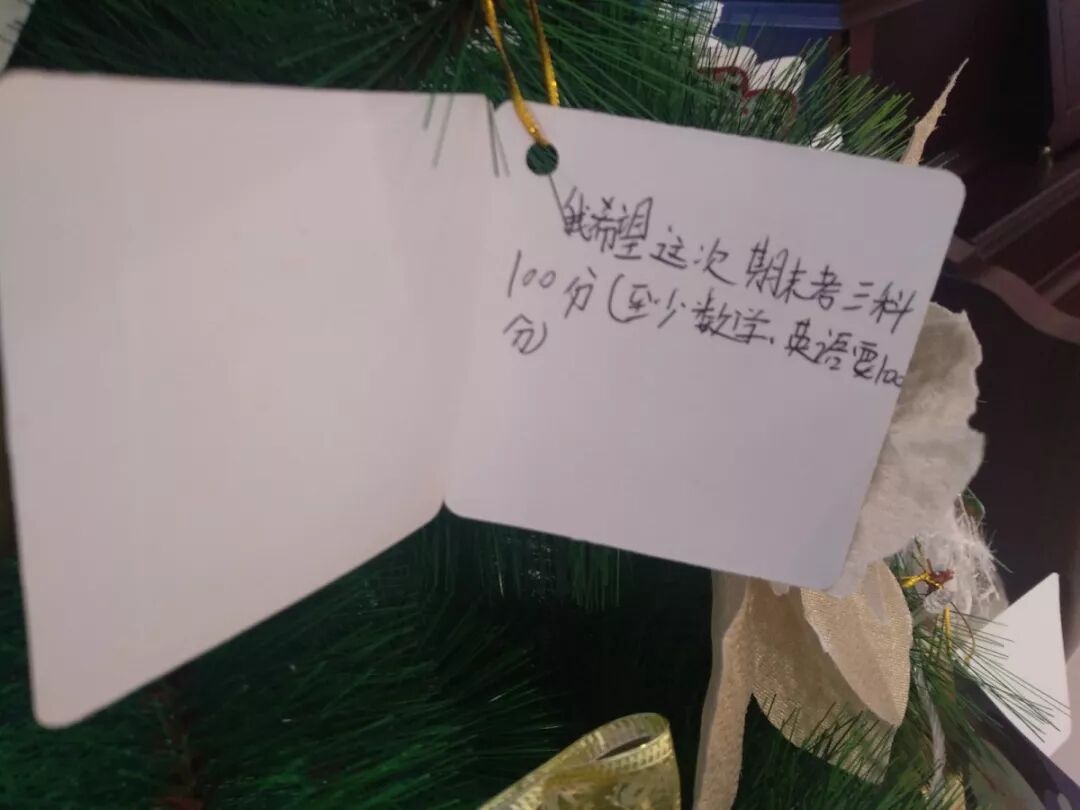 我希望这次期末考三科
100分(至少数学、英语要100
分)